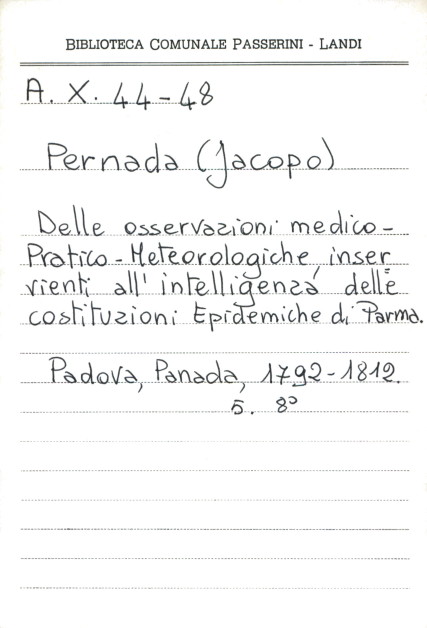 BIBLIOTECA COMUNALE PASSERINI - LANDI
A. X. 44-48
Pernada (Jacopo)
Delle osservazioni medico-
Pratico-Meteorologiche, inser=
vienti all'intelligenza delle
costituzioni Epidemiche di Parma.
Padova, Panada, 1792-1812.
5. 8°